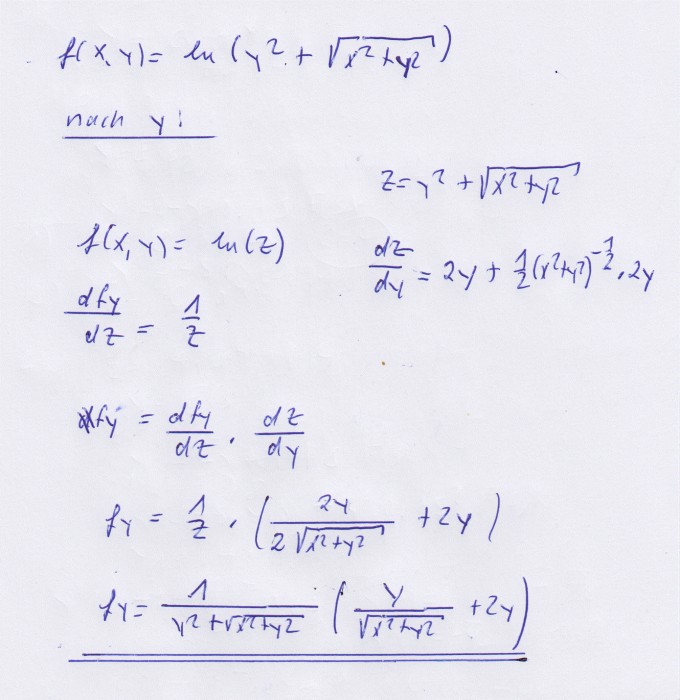 f(x,y) = ln (y² + √(x²+y²))
nach y:
z = y² + √(x²+y²)
f(x,y) = ln(z)
dz/dy = 2y + 1/2 (x²+y²)^(-1/2) · 2y
dfy/dz = 1/z
fy = dfy/dz · dz/dy
fy = 1/z · (2y/(2√(x²+y²)) + 2y)
fy = 1/(y²+√(x²+y²)) (y/√(x²+y²) + 2y)